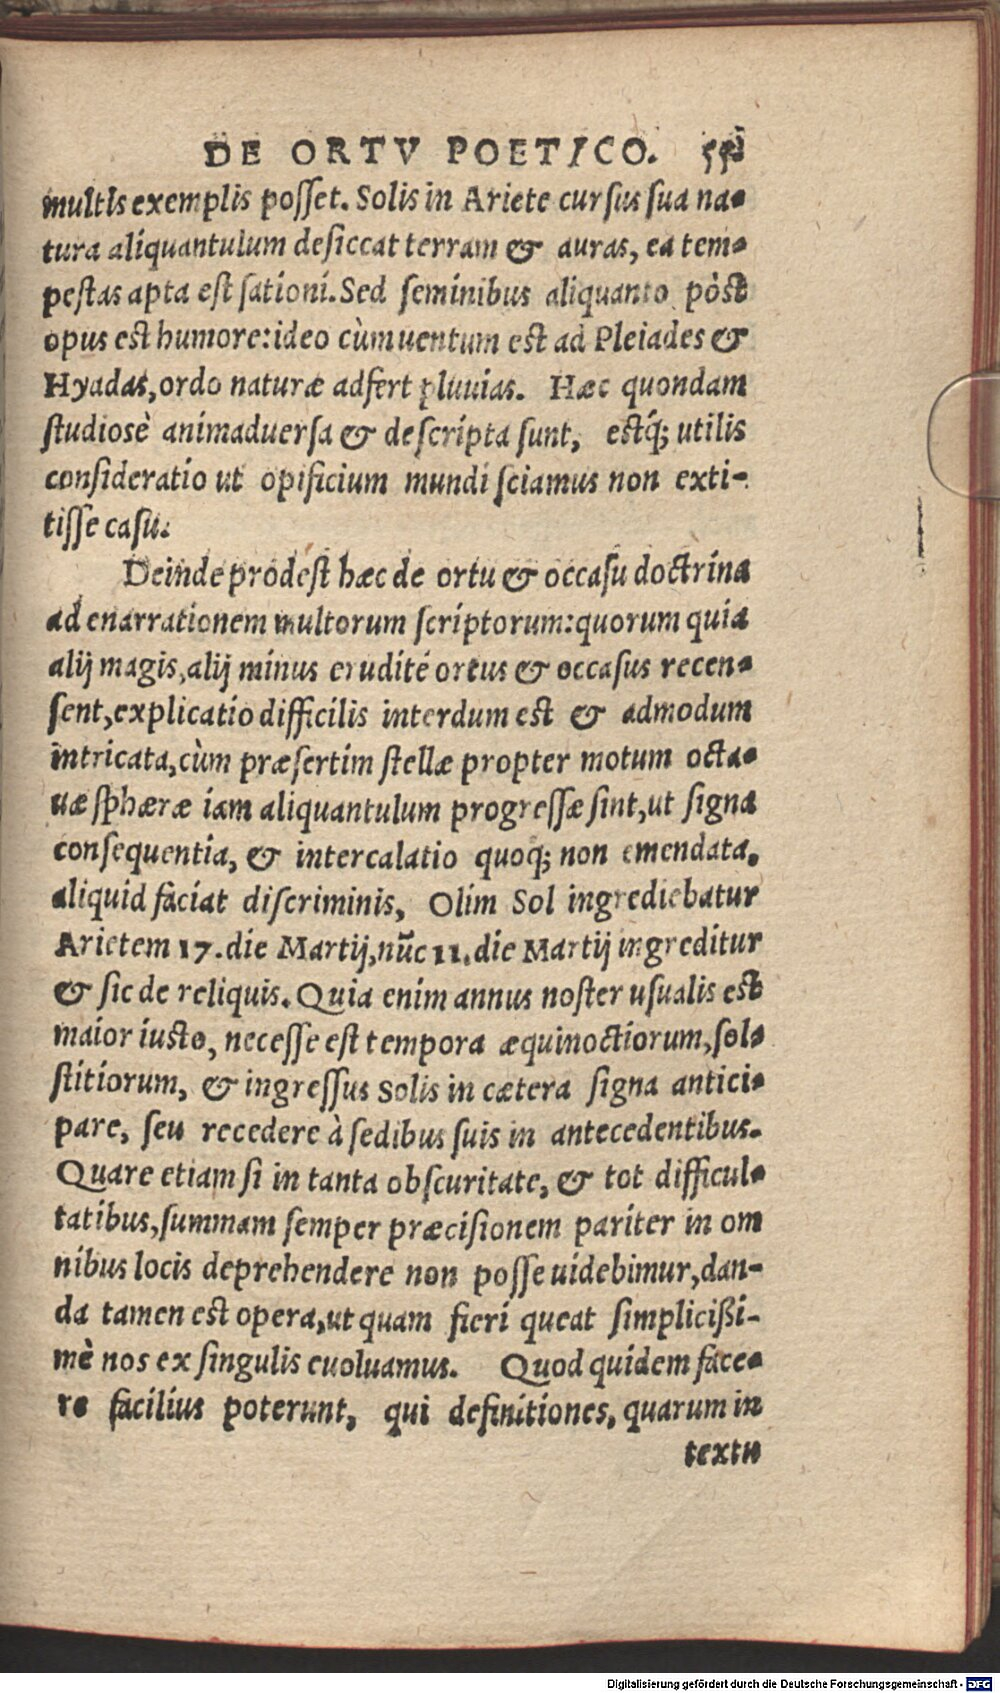 DE ORTV POETICO.
multis exemplis posset. Solis in Ariete cursus sua na-
tura aliquantulum desiccat terram & auras, ea tem-
pestas apta est sationi. Sed seminibus aliquanto pòst
opus est humore: ideo cùm uentum est ad Pleiades &
Hyadas, ordo naturæ adfert pluuias. Hæc quondam
studiosè animaduersa & descripta sunt, estq́; utilis
consideratio ut opificium mundi sciamus non exti-
tisse casu.
Deinde prodest hæc de ortu & occasu doctrina
ad enarrationem multorum scriptorum: quorum quia
alij magis, alij minus erudité ortus & occasus recen-
sent, explicatio difficilis interdum est & admodum
intricata, cùm præsertim stellæ propter motum octa-
uæ sphæræ iam aliquantulum progressæ sint, ut signa
consequentia, & intercalatio quoq; non emendata,
aliquid faciat discriminis, Olim Sol ingrediebatur
Arietem 17. die Martij, nūc 11. die Martij ingreditur
& sic de reliquis. Quia enim annus noster usualis est
maior iusto, necesse est tempora æquinoctiorum, sol-
stitiorum, & ingressus Solis in cætera signa antici-
pare, seu recedere à sedibus suis in antecedentibus.
Quare etiam si in tanta obscuritate, & tot difficul-
tatibus, summam semper præcisionem pariter in om
nibus locis deprehendere non posse uidebimur, dan-
da tamen est opera, ut quam fieri queat simplicißi-
mè nos ex singulis euoluamus. Quod quidem face-
re facilius poterunt, qui definitiones, quarum in
textu
Digitalisierung gefördert durch die Deutsche Forschungsgemeinschaft - DFG